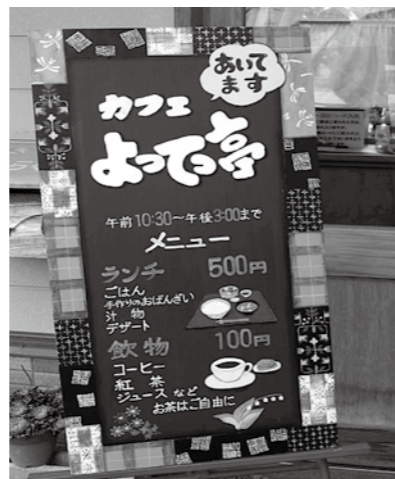 あいて
ます
カフェ
よってっ亭
午前10:30〜午後3:00まで
メニュー
ランチ 500円
ごはん
手作りのおばんざい
汁物
デザート
飲物 100円
コーヒー
紅茶
ジュースなど
お茶はご自由に